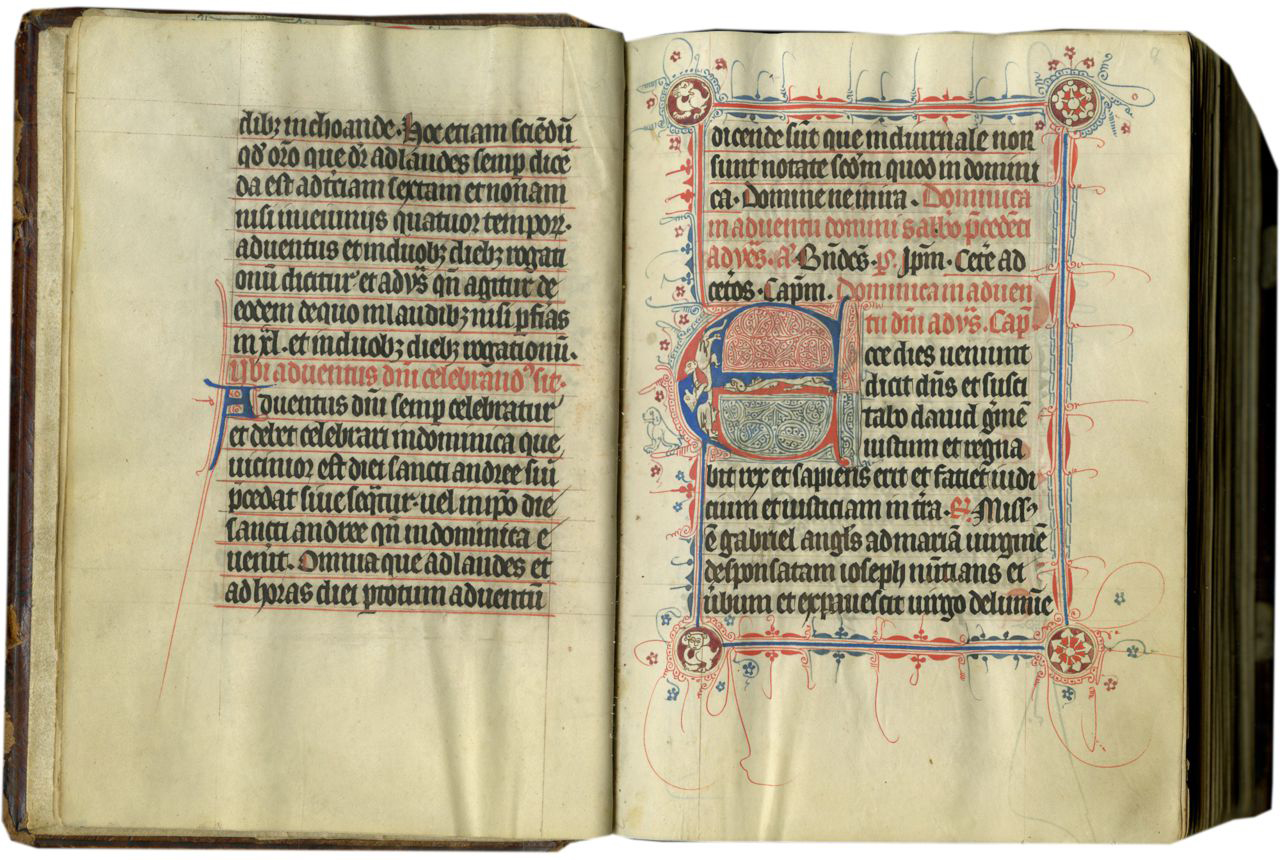 dibꝫ inchoande. Hoc etiam sciēdū
qđ or̄o que dr̄ ad laudes semp̄ dicē
da est ad t̓ciam sextam et nonam
nisi in ieiunijs quatuor tempoꝝ.
aduentus et in duobꝫ diebꝫ rogati
onū dicitur et ad vs̄ qn̄ agitur de
eodem de quo in laudibꝫ nisi p̄ fīas
in xl. et in duobꝫ diebꝫ rogationū.
Ubi aduentus dn̄i celebrand᷒ sit.
Aduentus dn̄i semp̄ celebratur
et debet celebrari in dominica que
uicinior est diei sancti andree siu̅
p̄cedat siue seqr̄tur. uel in ip̄o die
sancti andree qn̄ in dominica e
uen̓it. Omnia que ad laudes et
ad horas diei p̄ totum aduentū
dicende sūt que in diurnale non
sunt notate scd̄m quod in domini
ca. Domine ne in ira. Dominica
in aduentu domini sabb̄o p̄cedēti
ad vēs. a̅. Bn̄dc̄s. p̄. Ip̄m. Cet̓e ad
cet̓os. Cap̄m. Dominica in aduen
tu dn̄i ad vs̄. Cap̄.
Ecce dies ueniunt
dicit dn̄s et susci
tabo dauid g̓mē
iustum et regna
bit rex et sapiens erit et faciet iudi
cium et iusticiam in t̓ra. ℟. Miss᷒
ē gabriel angl̄s ad mariā uirginē
desponsatam ioseph nūtians ei
u̓bum et expauescit uirgo de lumīe